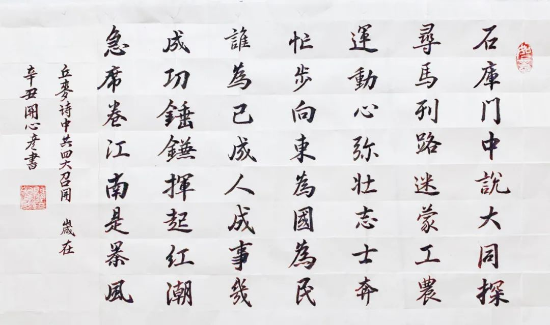 石庫門中說大同探
尋馬列路迷蒙工農
運動心弥壮志士奔
忙步向東為國為民
誰為已成人成事幾
成功錘鐮揮起紅潮
急席卷江南是暴風
丘麥诗中共四大召開 歲在
辛丑開心彦書